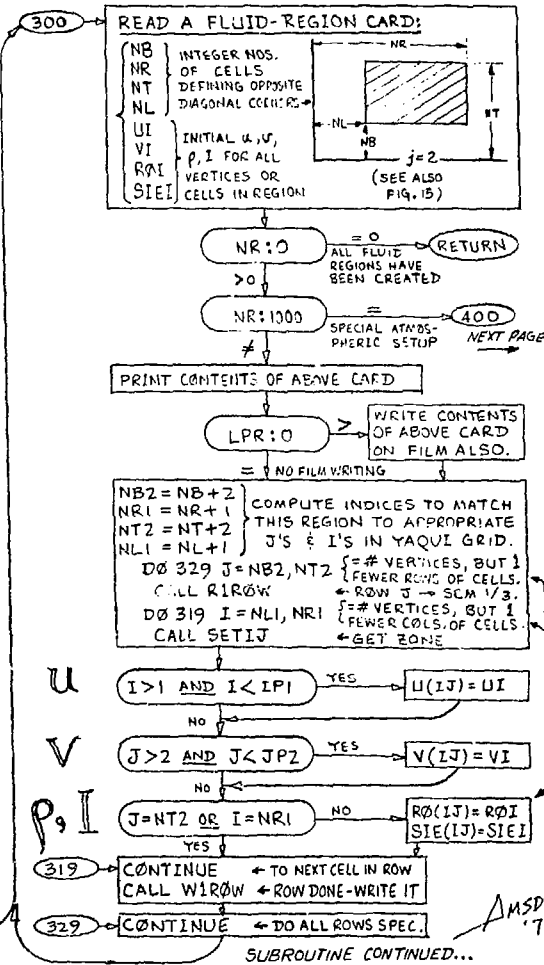 300
READ A FLUID-REGION CARD:
NB
NR
NT
NL
INTEGER NOS.
OF CELLS
DEFINING OPPOSITE
DIAGONAL CORNERS
UI
VI
RØI
SIEI
INITIAL u, v,
ρ, I FOR ALL
VERTICES OR
CELLS IN REGION
NR
NT
NL
NB
j=2
(SEE ALSO
FIG. 15)
NR:0
= 0
ALL FLUID
REGIONS HAVE
BEEN CREATED
RETURN
>0
NR:1000
=
SPECIAL ATMOS-
PHERIC SETUP
400
NEXT PAGE
≠
PRINT CØNTENTS ØF ABØVE CARD
LPR:0
>
WRITE CONTENTS
OF ABOVE CARD
ON FILM ALSO.
= NO FILM WRITING
NB2 = NB+2
NR1 = NR+1
NT2 = NT+2
NL1 = NL+1
COMPUTE INDICES TO MATCH
THIS REGION TO APPROPRIATE
J'S & I'S IN YAQUI GRID.
DØ 329 J=NB2, NT2 {=# VERTICES, BUT 1
FEWER ROWS OF CELLS.
CALL R1RØW ← RØW J → SCM 1/3.
DØ 319 I=NL1, NR1 {=# VERTICES, BUT 1
FEWER COLS. OF CELLS.
CALL SETIJ ← GET ZONE
U
I>1 AND I<IP1
YES
U(IJ)=UI
NO
V
J>2 AND J<JP2
YES
V(IJ)=VI
NO
ρ, I
J=NT2 OR I=NR1
NO
RØ(IJ)=RØI
SIE(IJ)=SIEI
YES
319
CØNTINUE ← TO NEXT CELL IN ROW
CALL W1RØW ← ROW DONE-WRITE IT
329
CØNTINUE ← DO ALL ROWS SPEC.
AMSD
'7
SUBROUTINE CONTINUED...